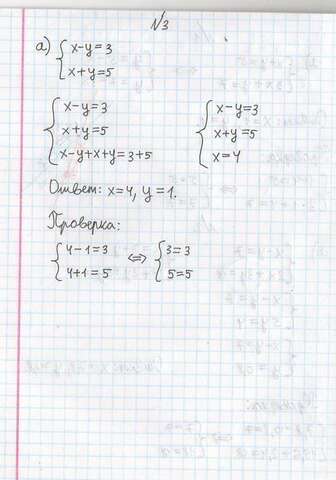 №3
а) { x-y=3
x+y=5
{ x-y=3
x+y=5
x-y+x+y=3+5
{ x-y=3
x+y=5
x=4
Ответ: x=4, y=1.
Проверка:
{ 4-1=3
4+1=5
⇔ { 3=3
5=5